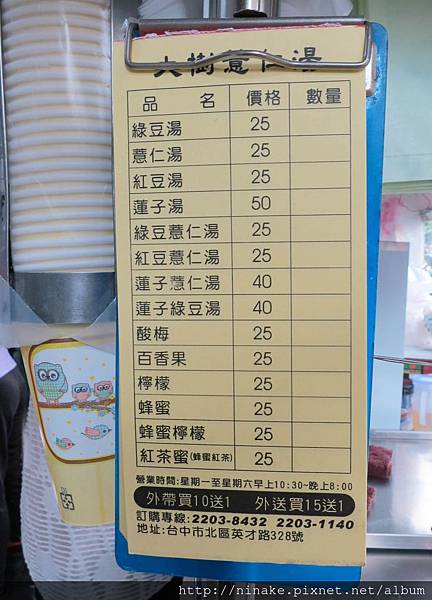 大樹薏仁湯
品 名 價格 數量
綠豆湯 25
薏仁湯 25
紅豆湯 25
蓮子湯 50
綠豆薏仁湯 25
紅豆薏仁湯 25
蓮子薏仁湯 40
蓮子綠豆湯 40
酸梅 25
百香果 25
檸檬 25
蜂蜜 25
蜂蜜檸檬 25
紅茶蜜(蜂蜜紅茶) 25
營業時間:星期一至星期六早上10:30-晚上8:00
外帶買10送1 外送買15送1
訂購專線:2203-8432 2203-1140
地址:台中市北區英才路328號
http://nihake.pixnet.net/album